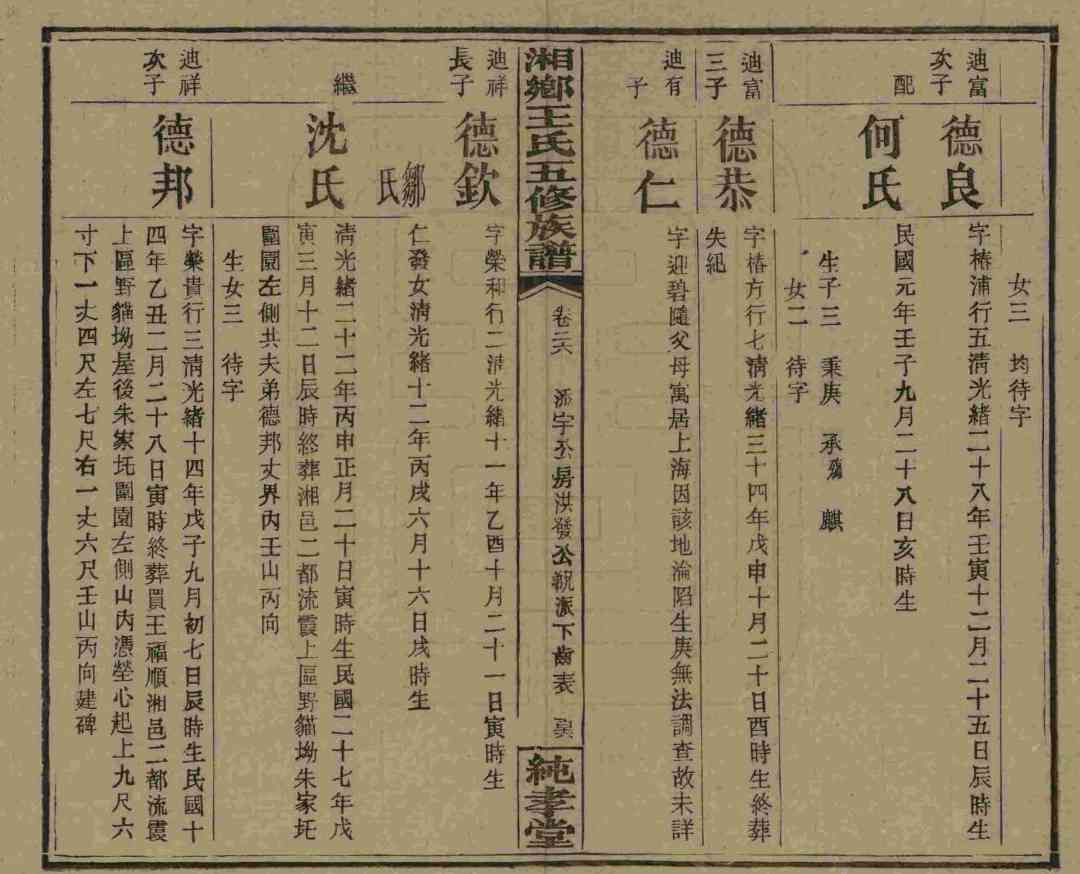 女三　均待字
迪富次子　德良　字椿浦行五淸光緒二十八年壬寅十二月二十五日辰時生
配　何氏　民國元年壬子九月二十八日亥時生
生子三　秉庚　承　麒
女二　待字
迪富三子　德恭　字椿方行七淸光緒三十四年戊申十月二十日酉時生終葬
失紀
迪有子　德仁　字迎碧隨父母寓居上海因該地淪陷生庚無法調查故未詳
湘鄉王氏五修族譜　卷二六　添字公房洪發公裔派下齒表　純孝堂
迪祥長子　德欽　字榮和行二淸光緒十一年乙酉十月二十一日寅時生
鄒氏　仁發女淸光緒十二年丙戌六月十六日戌時生
繼　沈氏　淸光緒二十二年丙申正月二十日寅時生民國二十七年戊
寅三月十二日辰時終葬湘邑二都流霞上區野貓坳朱家圫
圍園左側共夫弟德邦丈界內壬山丙向
生女三　待字
迪祥次子　德邦　字榮貴行三淸光緒十四年戊子九月初七日辰時生民國十
四年乙丑二月二十八日寅時終葬買王福順湘邑二都流霞
上區野貓坳屋後朱家圫圍園左側山內憑塋心起上九尺六
寸下一丈四尺左七尺右一丈六尺壬山丙向建碑